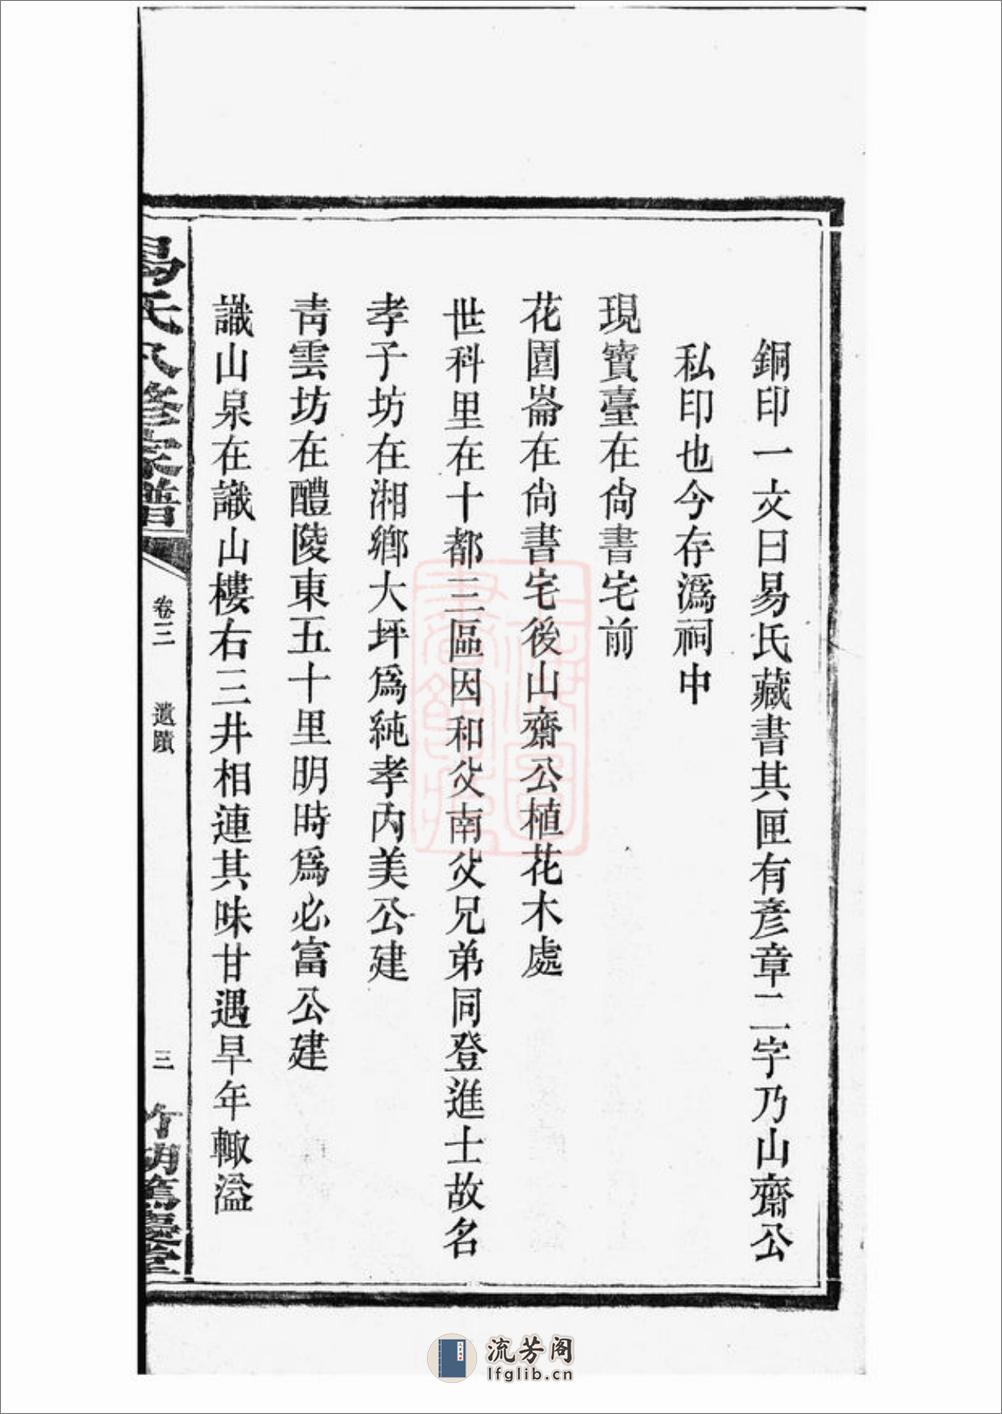 銅印一文曰易氏藏書其匣有彥章二字乃山齋公
私印也今存溈祠中
現寶臺在尙書宅前
花園崙在尙書宅後山齋公植花木處
世科里在十都三區因和父南父兄弟同登進士故名
孝子坊在湘鄉大坪爲純孝內美公建
靑雲坊在醴陵東五十里明時爲必富公建
識山泉在識山樓右三井相連其味甘遇旱年輙溢
易氏八修家譜
卷三
遺蹟
三
流芳阁
lfglib.cn